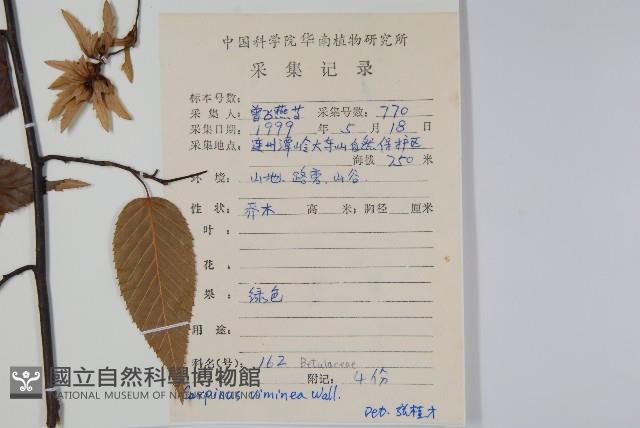 中国科学院华南植物研究所
采集记录
标本号数:
采集人: 曾飞燕等 采集号数: 770
采集日期: 1999 年 5 月 18 日
采集地点: 连州潭岭大东山自然保护区
海拔 750 米
环境: 山地、路旁、山谷
性状: 乔木 高 米; 胸径 厘米
叶:
花:
果: 绿色
用途:
科名(号): 162 Betulaceae
附记: 4份
Carpinus viminea Wall.
Det. 张桂才
國立自然科學博物館
NATIONAL MUSEUM OF NATURAL SCIENCE